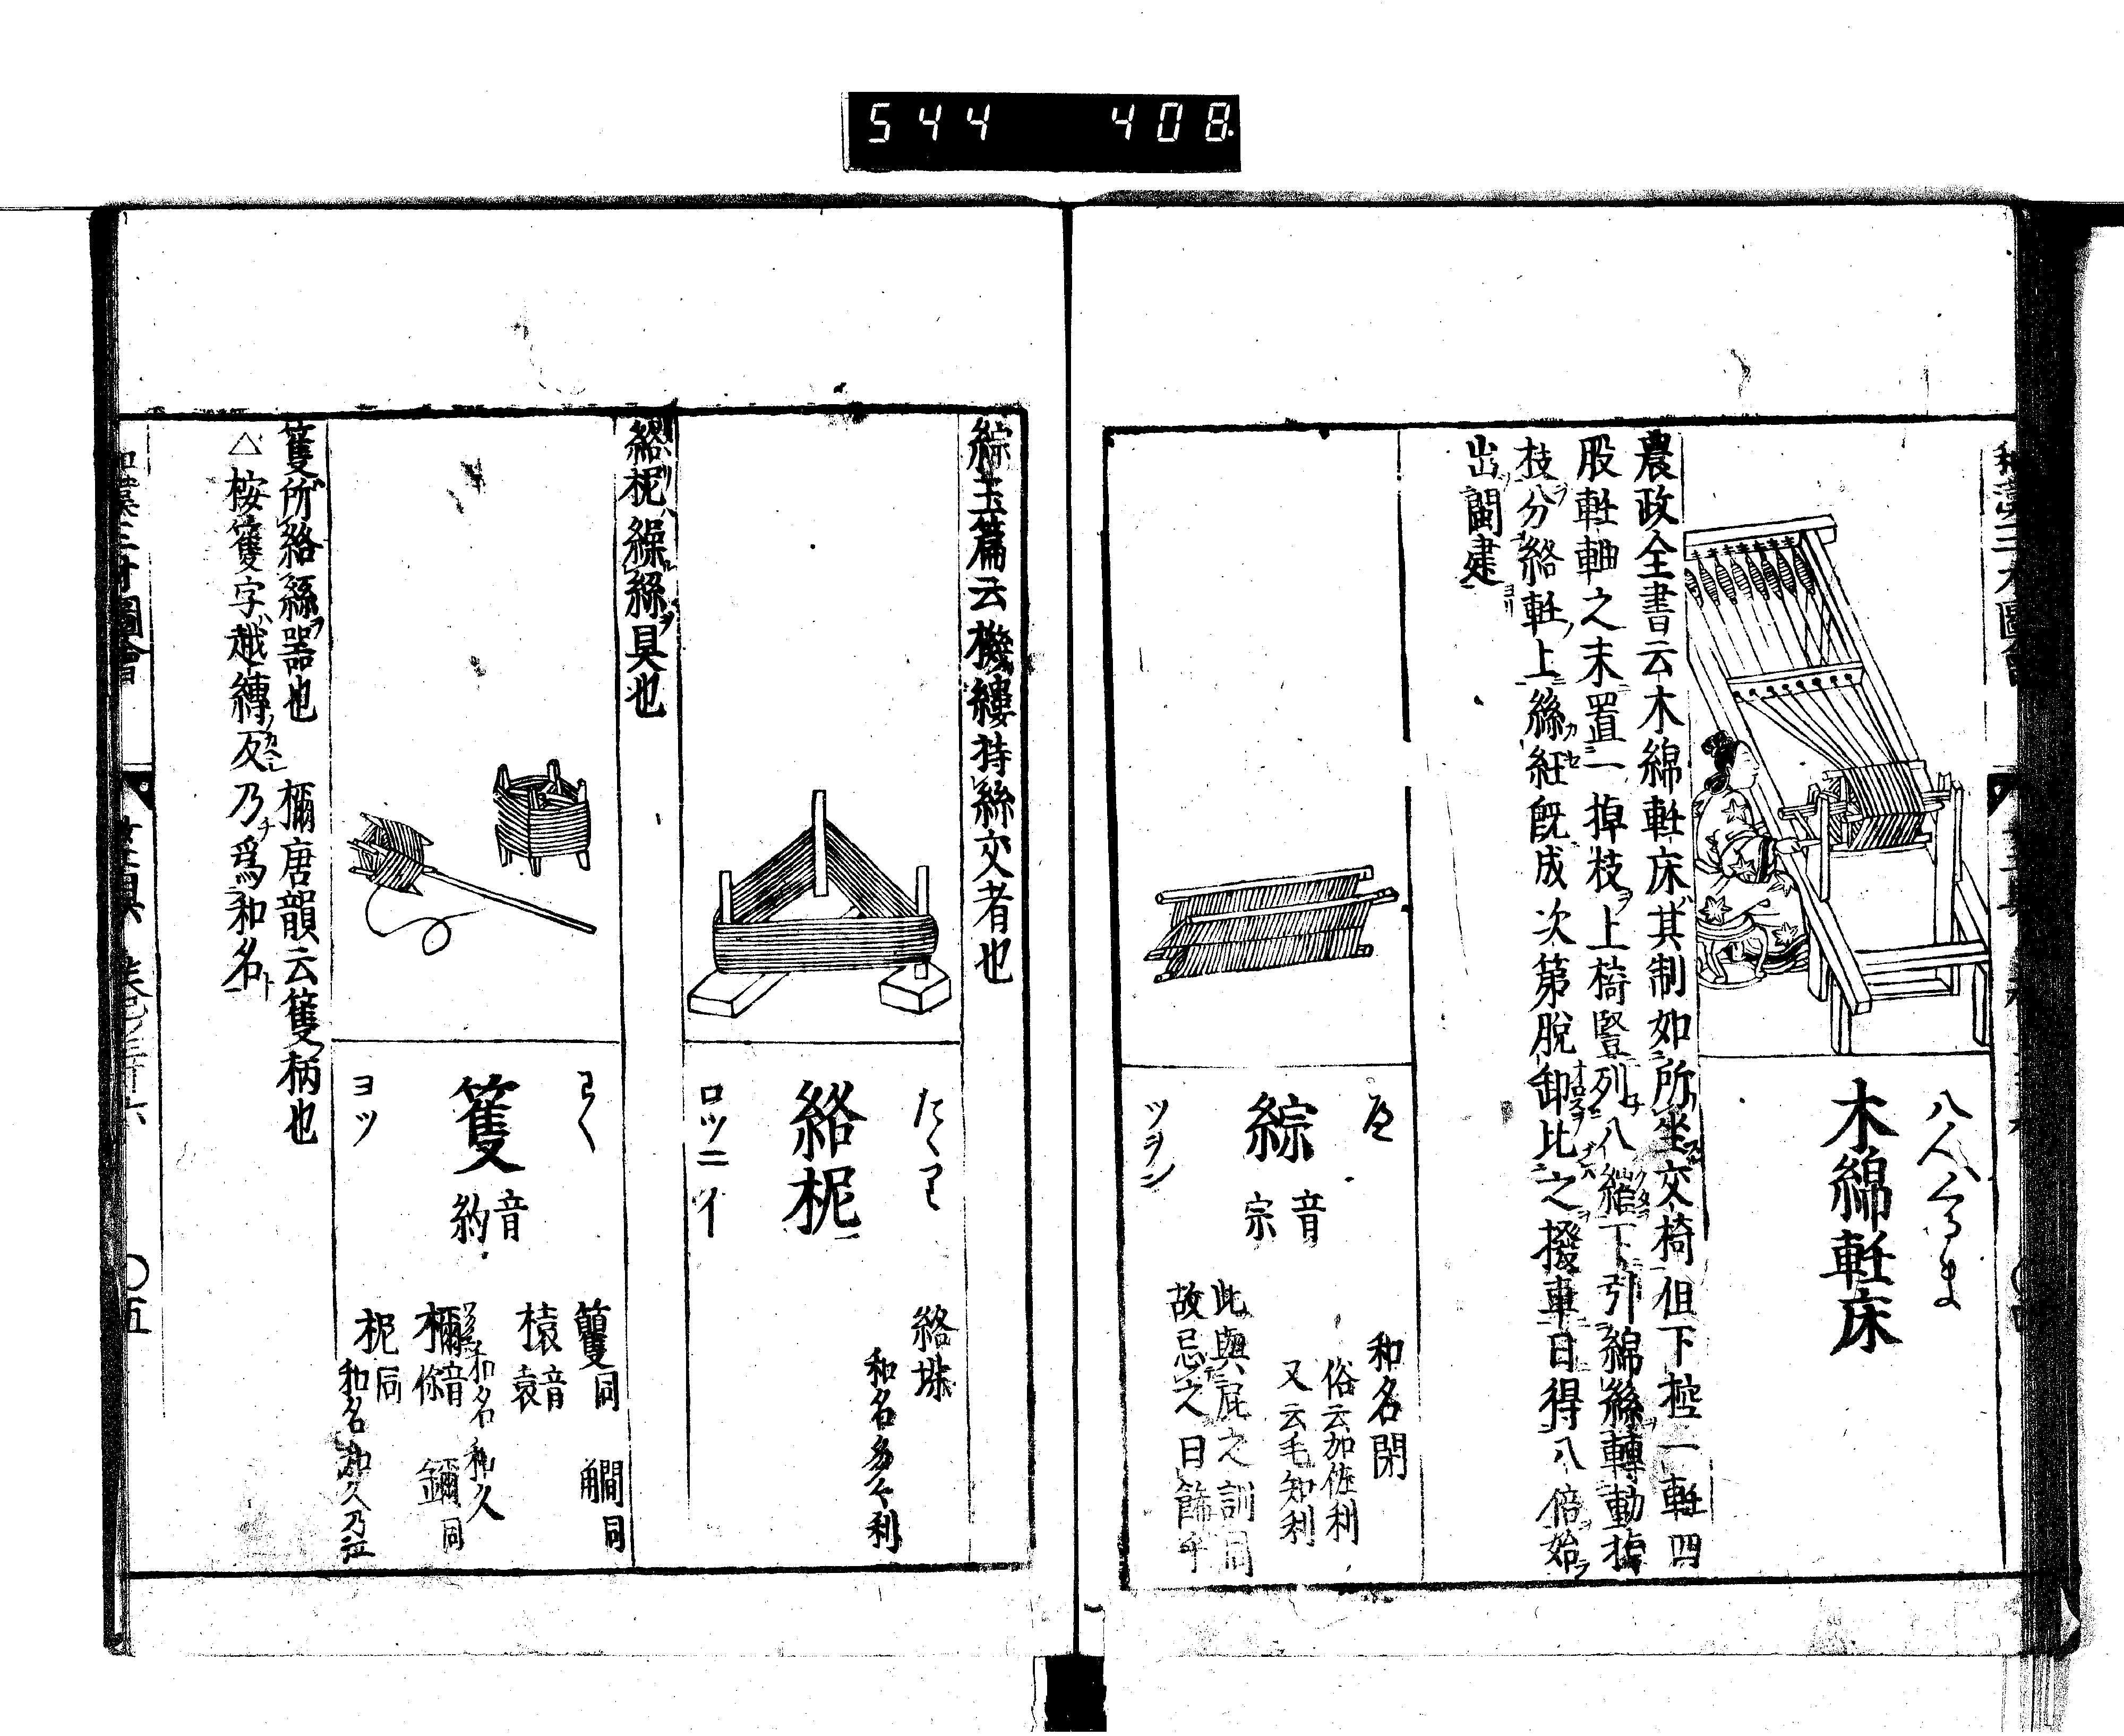 544 408
八人くるま
木綿軠床
農政全書云木綿軠床其制如所坐交椅但下控一軠四
股軠軸之末置一掉枝上椅豎列八繀下引綿絲轉動掉
枝分絡軠上絲紝既成次第脫卸比之撥車日得八倍始
出閩建
へ
綜
音宗
ツヲン
和名閉
俗云加佐利
又云毛知利
此與屁之訓同
故忌之曰餝乎
綜玉篇云機縷持絲交者也
たゝり
絡柅
ロツニイ
絡垜
和名多々利
絡柅繰絲具也
わく
籰
音約
ヨツ
籆同
榬音袁
和名和久
檷音你
鑈同
柅同
和名和久乃江
籰所絡絲器也 檷唐韻云籰柄也
△按籰字越縛反乃爲和名
和漢三才圖會
〇五